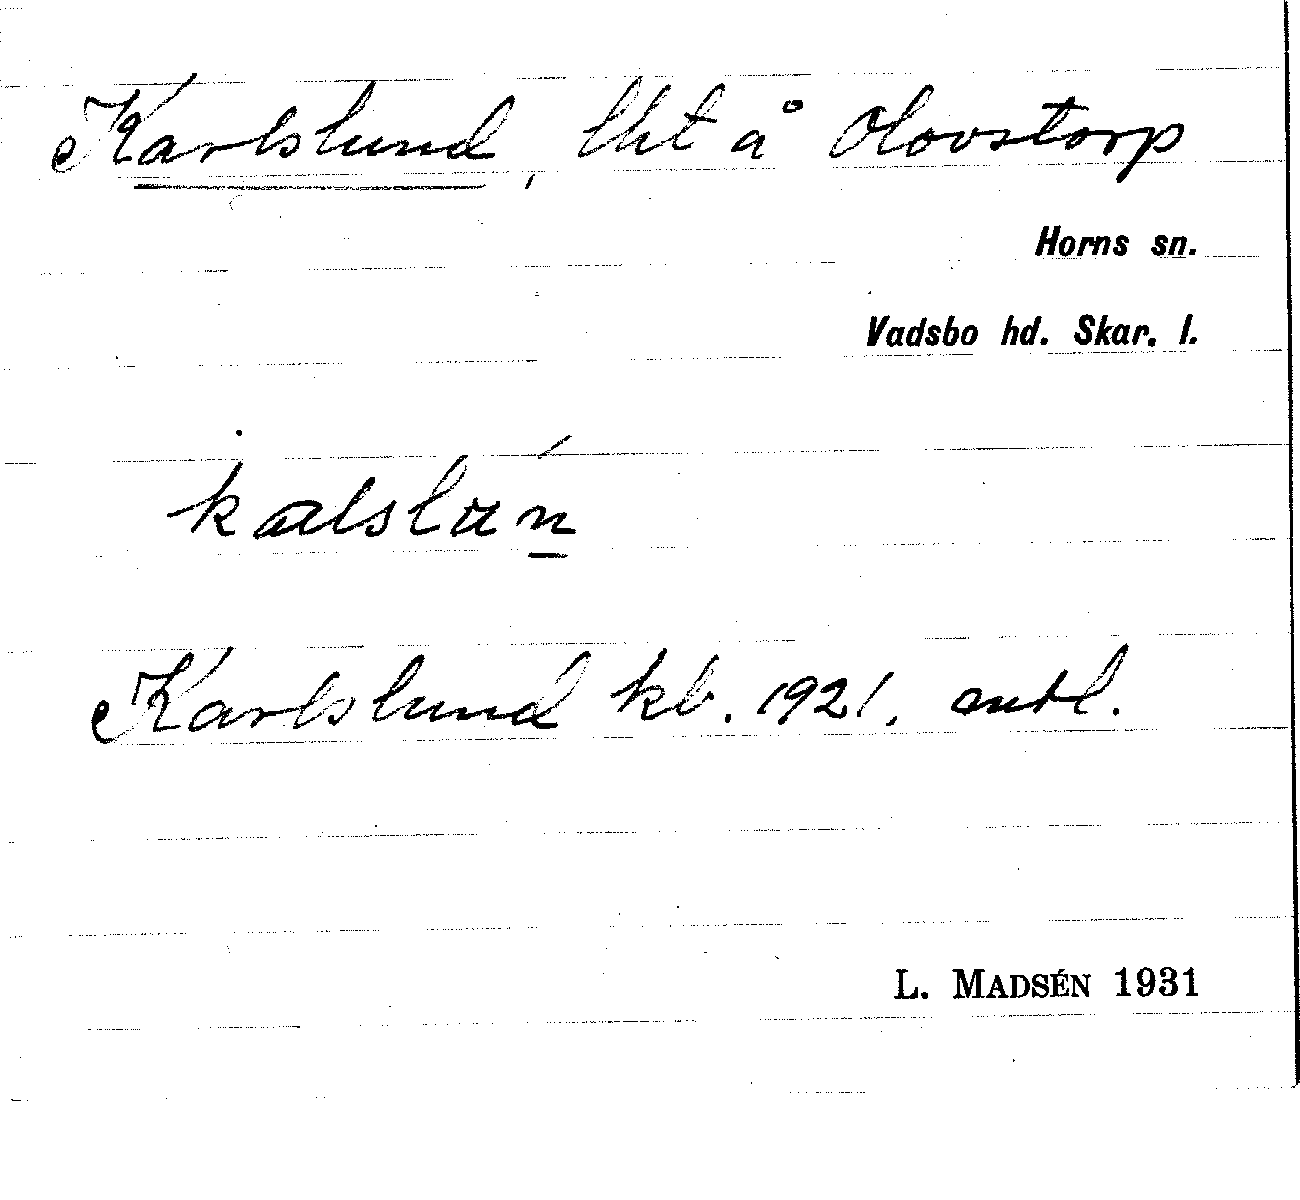 Karlslund, lht å Olovstorp
Horns sn.
Vadsbo hd. Skar. l.
Karlslund kb. 1921.
L. MADSÉN 1931